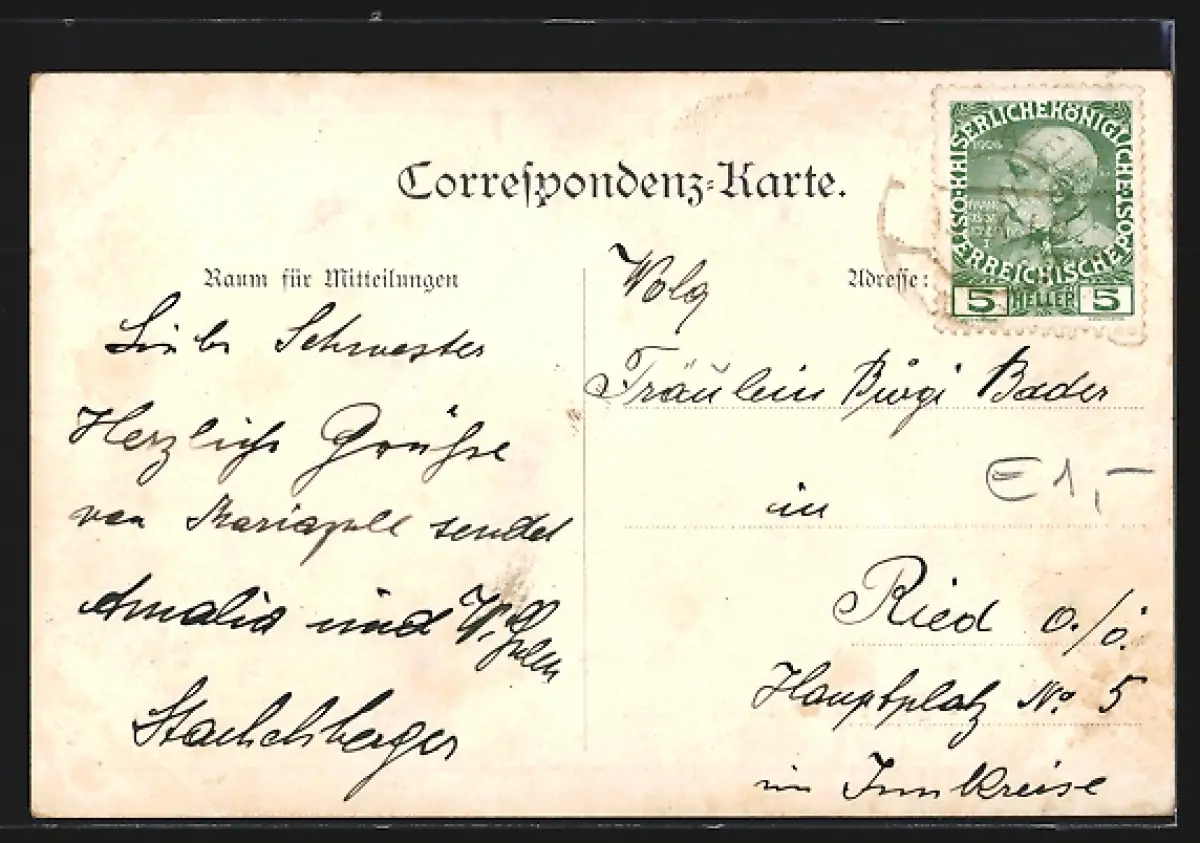 Correspondenz-Karte.
Raum für Mitteilungen
Liebe Schwester
Herzliche Grüße
von Mariazell sendet
Amalia und
Adresse:
Fräulein Bürgi Bader
in
Ried o./ö.
Hauptplatz No 5
im Innkreise
E 1,-
KAISERLICHEKÖNIGLICHE
ÖSTERREICHISCHE POST
1908
5 HELLER 5